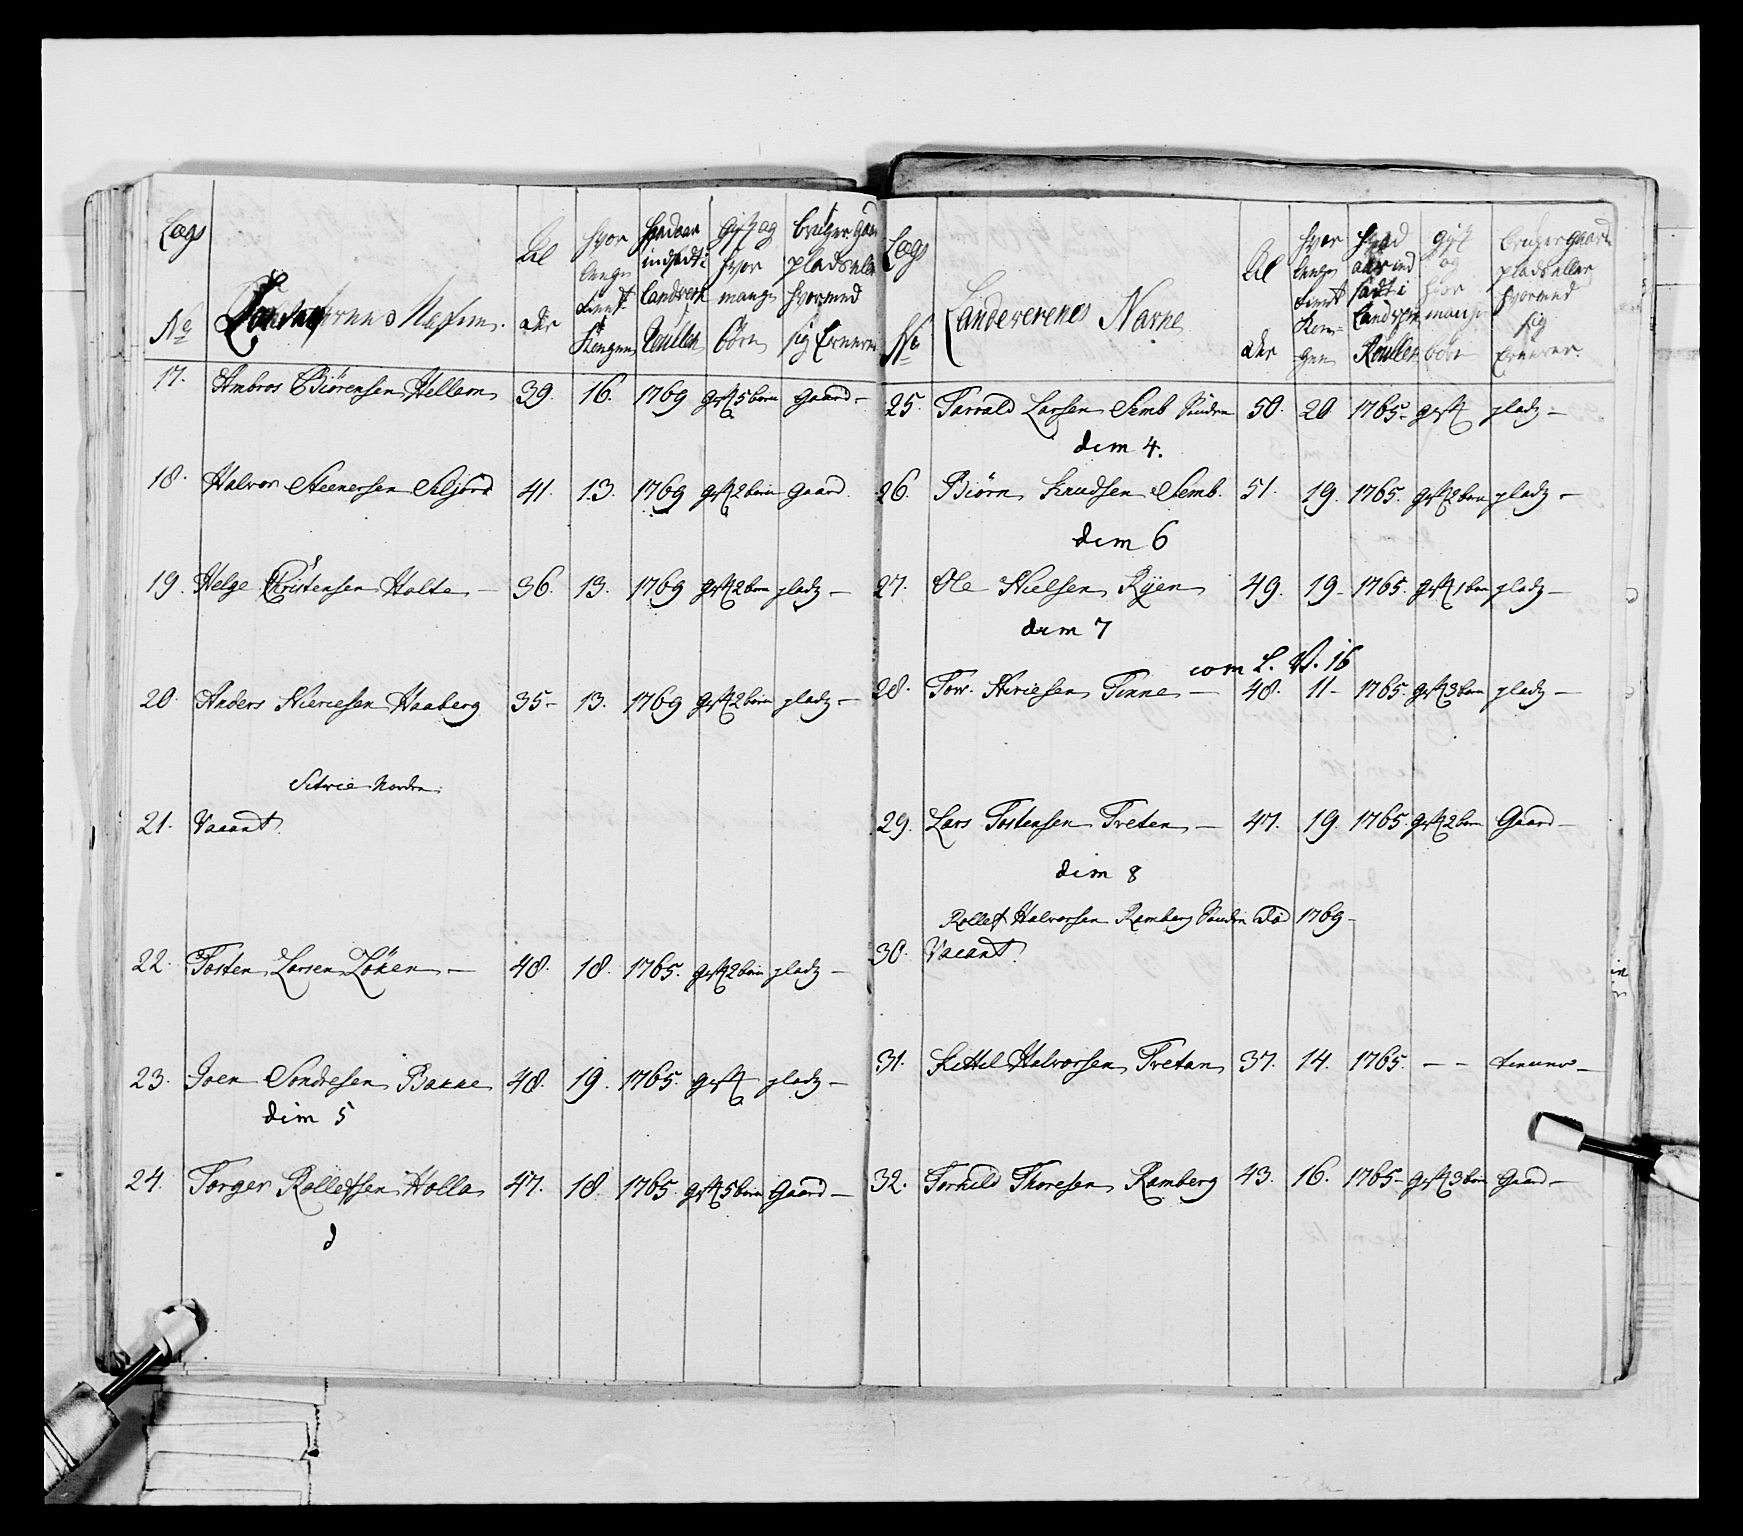 Lægs
No
Landverenes Nafne.
Al
der
hvor
lenge
tient
Kongen
hvad aar
indsadt i
Landvern
Roullen
Gift og
hvor
mange
børn
bruger gaard
plads eller
hvormed
sig Ernerer
17. Ambros Biörensen Hellem 39. 16. 1769 gift 5 børn gaard –
18. Halvor Steenersen Seljord 41. 13. 1769 gift 2 børn gaard.
19. Helge Christensen Holte – 36. 13. 1769 gift 2 børn pladz –
20. Anders Haaberg 35 – 13. 1769 gift 2 børn pladz –
Nordre
21. Vacant.
22. Tosten Larsen Löken – 48. 18. 1765. gift 2 børn pladz –
23. Joen Sondresen Bakke 48. 19. 1765. gift pladz –
dim 5
24. Torger Rollefsen Holla 47. 18. 1765. gift 5 børn Gaard –
d
Lægs
No
Landeverenes Navne
Al
der
hvor
lenge
tient
Kon-
gen
hvad
aar ind
sadt i
Landvern
Roullen
gift
og
hvor
mange
børn
bruger gaard
plads eller
hvormed
sig
Ernerer.
25. Tarrald Larsen Semb Sönden 50. 20 1765 – gift pladz –
dim 4.
26. Biörn Knudsen Semb. 51. 19. 1765. gift 2 børn pladz –
dim 6
27. Ole Nielsen Ryen 49. 19 – 1765. gift 1 børn pladz –
dim 7
com L. N. 16
28. Tov. Tinne – 48. 11 – 1765. gift 3 børn pladz –
29. Lars Tostensen Treten – 47. 19. 1765. gift 2 børn Gaard –
dim 8
Rollef Halvorsen Ramberg Sönden Död 1769 –
30. Vacant.
31. Kittel Halvorsen Tretan 37. 14. 1765. – – tienner –
32. Torkild Thoresen Ramberg 43. 16. 1765 – gift 3 børn Gaard –